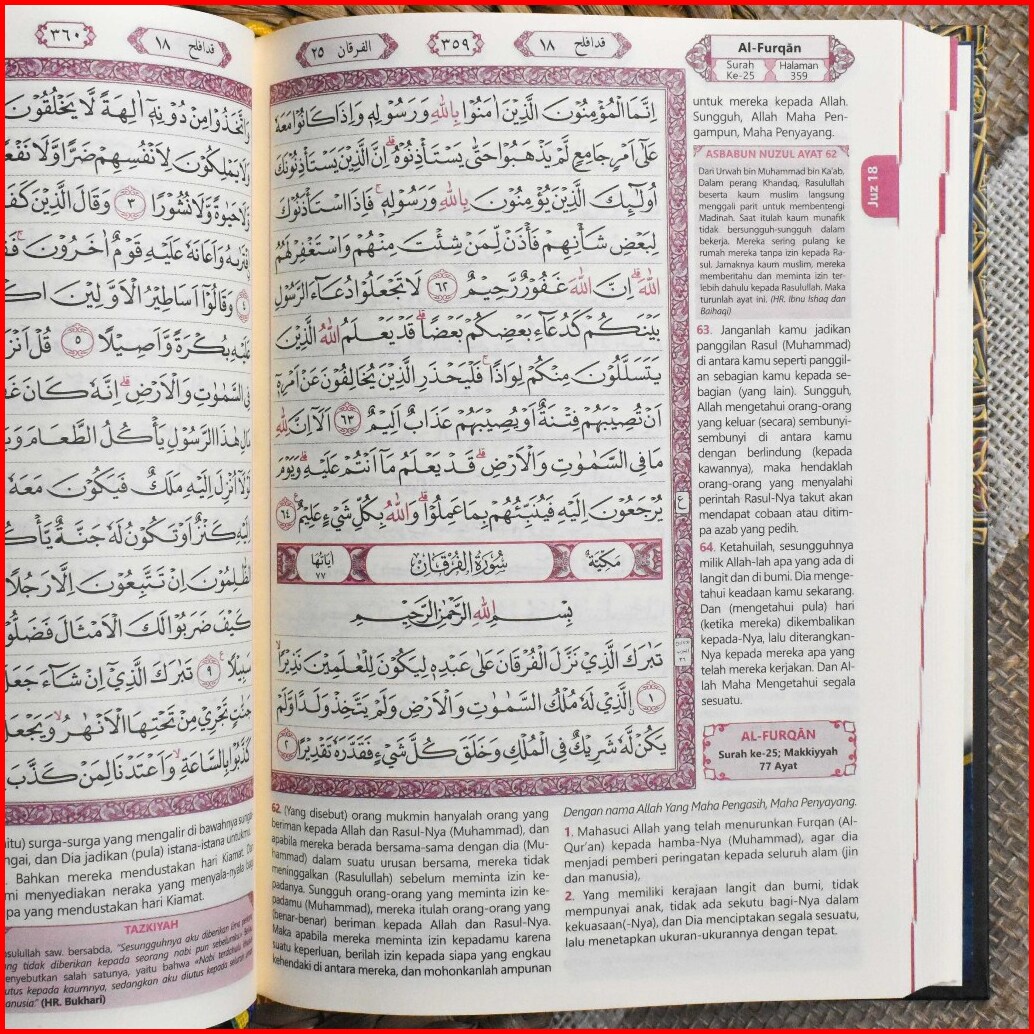 الفرقان ٢٥
٣٥٩
قدافلح ١٨
اِنَّمَا الْمُؤْمِنُوْنَ الَّذِيْنَ اٰمَنُوْا بِاللّٰهِ وَرَسُوْلِهٖ وَاِذَا كَانُوْا مَعَهٗ
عَلٰٓى اَمْرٍ جَامِعٍ لَّمْ يَذْهَبُوْا حَتّٰى يَسْتَأْذِنُوْهُۗ اِنَّ الَّذِيْنَ يَسْتَأْذِنُوْنَكَ
اُولٰۤىِٕكَ الَّذِيْنَ يُؤْمِنُوْنَ بِاللّٰهِ وَرَسُوْلِهٖۚ فَاِذَا اسْتَأْذَنُوْكَ
لِبَعْضِ شَأْنِهِمْ فَأْذَنْ لِّمَنْ شِئْتَ مِنْهُمْ وَاسْتَغْفِرْ لَهُمُ
اللّٰهَۗ اِنَّ اللّٰهَ غَفُوْرٌ رَّحِيْمٌ ٦٢ لَا تَجْعَلُوْا دُعَاۤءَ الرَّسُوْلِ
بَيْنَكُمْ كَدُعَاۤءِ بَعْضِكُمْ بَعْضًاۗ قَدْ يَعْلَمُ اللّٰهُ الَّذِيْنَ
يَتَسَلَّلُوْنَ مِنْكُمْ لِوَاذًاۚ فَلْيَحْذَرِ الَّذِيْنَ يُخَالِفُوْنَ عَنْ اَمْرِهٖٓ
اَنْ تُصِيْبَهُمْ فِتْنَةٌ اَوْ يُصِيْبَهُمْ عَذَابٌ اَلِيْمٌ ٦٣ اَلَآ اِنَّ لِلّٰهِ
مَا فِى السَّمٰوٰتِ وَالْاَرْضِۗ قَدْ يَعْلَمُ مَآ اَنْتُمْ عَلَيْهِۗ وَيَوْمَ
يُرْجَعُوْنَ اِلَيْهِ فَيُنَبِّئُهُمْ بِمَا عَمِلُوْاۗ وَاللّٰهُ بِكُلِّ شَيْءٍ عَلِيْمٌ ٦٤
ع
مَكِّيَّة
سُوْرَةُ الْفُرْقَانِ
اٰيَاتُهَا ٧٧
بِسْمِ اللّٰهِ الرَّحْمٰنِ الرَّحِيْمِ
تَبٰرَكَ الَّذِيْ نَزَّلَ الْفُرْقَانَ عَلٰى عَبْدِهٖ لِيَكُوْنَ لِلْعٰلَمِيْنَ نَذِيْرًاۙ
١ ۨالَّذِيْ لَهٗ مُلْكُ السَّمٰوٰتِ وَالْاَرْضِ وَلَمْ يَتَّخِذْ وَلَدًا وَّلَمْ
يَكُنْ لَّهٗ شَرِيْكٌ فِى الْمُلْكِ وَخَلَقَ كُلَّ شَيْءٍ فَقَدَّرَهٗ تَقْدِيْرًا ٢
62. (Yang disebut) orang mukmin hanyalah orang yang
beriman kepada Allah dan Rasul-Nya (Muhammad), dan
apabila mereka berada bersama-sama dengan dia (Mu-
hammad) dalam suatu urusan bersama, mereka tidak
meninggalkan (Rasulullah) sebelum meminta izin ke-
padanya. Sungguh orang-orang yang meminta izin ke-
padamu (Muhammad), mereka itulah orang-orang yang
(benar-benar) beriman kepada Allah dan Rasul-Nya.
Maka apabila mereka meminta izin kepadamu karena
suatu keperluan, berilah izin kepada siapa yang engkau
kehendaki di antara mereka, dan mohonkanlah ampunan
Al-Furqān
Surah Ke-25
Halaman 359
untuk mereka kepada Allah.
Sungguh, Allah Maha Pen-
gampun, Maha Penyayang.
ASBABUN NUZUL AYAT 62
Dari Urwah bin Muhammad bin Ka'ab,
Dalam perang Khandaq, Rasulullah
beserta kaum muslim langsung
menggali parit untuk membentengi
Madinah. Saat itulah kaum munafik
tidak bersungguh-sungguh dalam
bekerja. Mereka sering pulang ke
rumah mereka tanpa izin kepada Ra-
sul. Jamaknya kaum muslim, mereka
memberitahu dan meminta izin ter-
lebih dahulu kepada Rasulullah. Maka
turunlah ayat ini. (HR. Ibnu Ishaq dan
Baihaqi)
Juz 18
63. Janganlah kamu jadikan
panggilan Rasul (Muhammad)
di antara kamu seperti panggil-
an sebagian kamu kepada se-
bagian (yang lain). Sungguh,
Allah mengetahui orang-orang
yang keluar (secara) sembunyi-
sembunyi di antara kamu
dengan berlindung (kepada
kawannya), maka hendaklah
orang-orang yang menyalahi
perintah Rasul-Nya takut akan
mendapat cobaan atau ditim-
pa azab yang pedih.
64. Ketahuilah, sesungguhnya
milik Allah-lah apa yang ada di
langit dan di bumi. Dia menge-
tahui keadaan kamu sekarang.
Dan (mengetahui pula) hari
(ketika mereka) dikembalikan
kepada-Nya, lalu diterangkan-
Nya kepada mereka apa yang
telah mereka kerjakan. Dan Al-
lah Maha Mengetahui segala
sesuatu.
AL-FURQĀN
Surah ke-25; Makkiyyah
77 Ayat
Dengan nama Allah Yang Maha Pengasih, Maha Penyayang.
1. Mahasuci Allah yang telah menurunkan Furqan (Al-
Qur'an) kepada hamba-Nya (Muhammad), agar dia
menjadi pemberi peringatan kepada seluruh alam (jin
dan manusia),
2. Yang memiliki kerajaan langit dan bumi, tidak
mempunyai anak, tidak ada sekutu bagi-Nya dalam
kekuasaan(-Nya), dan Dia menciptakan segala sesuatu,
lalu menetapkan ukuran-ukurannya dengan tepat.
قدافلح ١٨
٣٦٠
وَاتَّخَذُوْا مِنْ دُوْنِهٖٓ اٰلِهَةً لَّا يَخْلُقُوْنَ
وَلَا يَمْلِكُوْنَ لِاَنْفُسِهِمْ ضَرًّا وَّلَا نَفْعًا
وَّلَا حَيٰوةً وَّلَا نُشُوْرًا ٣ وَقَالَ الَّذِيْنَ كَفَ
افْتَرٰىهُ وَاَعَانَهٗ عَلَيْهِ قَوْمٌ اٰخَرُوْنَۚ فَقَدْ
٤ وَقَالُوْٓا اَسَاطِيْرُ الْاَوَّلِيْنَ اكْ
عَلَيْهِ بُكْرَةً وَّاَصِيْلًا ٥ قُلْ اَنْزَ
فِى السَّمٰوٰتِ وَالْاَرْضِۗ اِنَّهٗ كَانَ غَفُ
مَالِ هٰذَا الرَّسُوْلِ يَأْكُلُ الطَّعَامَ وَيَ
لَوْلَآ اُنْزِلَ اِلَيْهِ مَلَكٌ فَيَكُوْنَ مَعَهٗ
اِلَيْهِ كَنْزٌ اَوْ تَكُوْنُ لَهٗ جَنَّةٌ يَّأْكُ
الظّٰلِمُوْنَ اِنْ تَتَّبِعُوْنَ اِلَّا رَجُلًا
كَيْفَ ضَرَبُوْا لَكَ الْاَمْثَالَ فَضَلُّوْا
سَبِيْلًا ٩ تَبٰرَكَ الَّذِيْٓ اِنْ شَاۤءَ جَعَلَ
جَنّٰتٍ تَجْرِيْ مِنْ تَحْتِهَا الْاَنْهٰرُۙ وَيَجْعَلْ
كَذَّبُوْا بِالسَّاعَةِۙ وَاَعْتَدْنَا لِمَنْ كَذَّبَ
itu) surga-surga yang mengalir di bawahnya sungai
ngai, dan Dia jadikan (pula) istana-istana untukmu.
. Bahkan mereka mendustakan hari Kiamat. Dan
mi menyediakan neraka yang menyala-nyala bagi
apa yang mendustakan hari Kiamat.
TAZKIYAH
asulullah saw. bersabda, "Sesungguhnya aku diberikan lima perkara
ang tidak diberikan kepada seorang nabi pun sebelumku.
enyebutkan salah satunya, yaitu bahwa «Nabi terdahulu
utus kepada kaumnya, sedangkan aku diutus kepada seluruh
anusia" (HR. Bukhari)